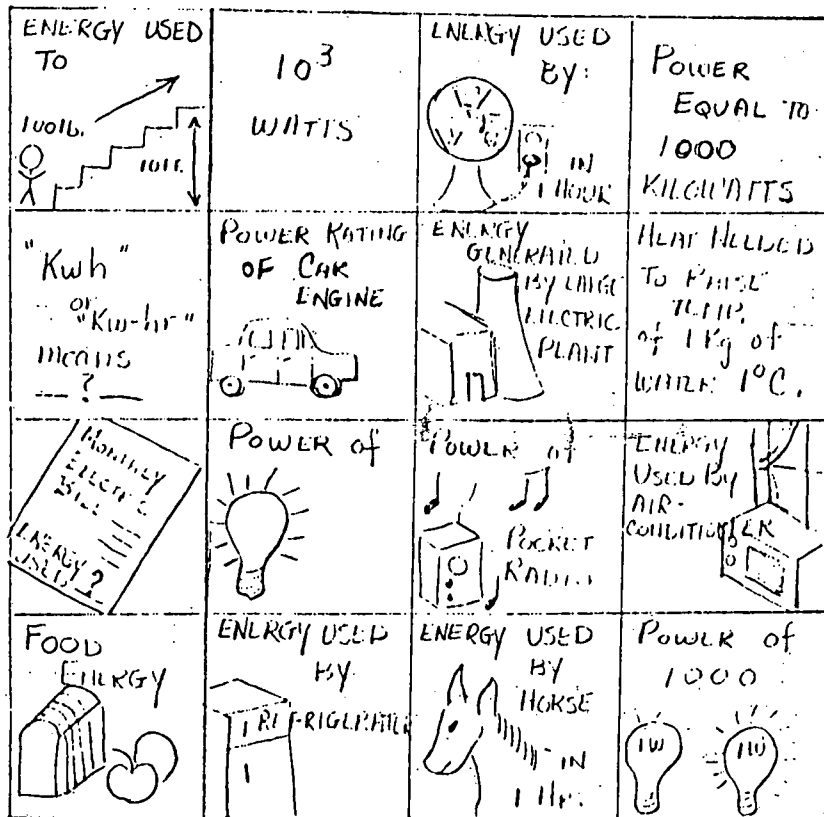 ENERGY USED
TO
100lb.
10FT.
10³
WATTS
ENERGY USED
BY:
IN
1 HOUR
POWER
EQUAL TO
1000
KILOWATTS
"Kwh"
or
"Kw-hr"
means
?
POWER RATING
OF CAR
ENGINE
ENERGY
GENERATED
BY LARGE
ELECTRIC
PLANT
HEAT NEEDED
TO RAISE
TEMP.
of 1 Kg of
WATER 1°C.
MONTHLY
ELECTRIC
BILL
ENERGY
USED ?
POWER of
POWER of
POCKET
RADIO
ENERGY
USED By
AIR-
CONDITIONER
FOOD
ENERGY
ENERGY USED
BY
REFRIGERATOR
ENERGY USED
BY
HORSE
IN
1 Hr.
POWER of
1000
1W
1W